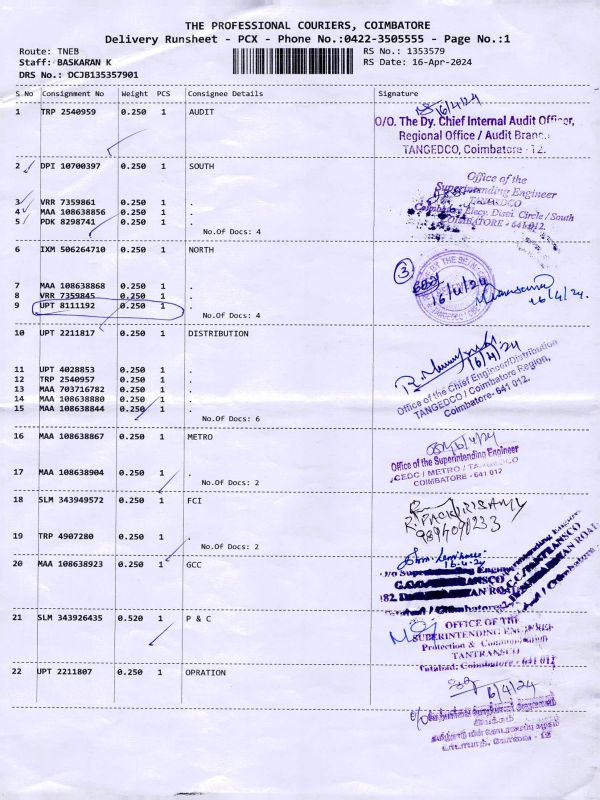 THE PROFESSIONAL COURIERS, COIMBATORE
Delivery Runsheet - PCX - Phone No.:0422-3505555 - Page No.:1
Route: TNEB
RS No.: 1353579
Staff: BASKARAN K
RS Date: 16-Apr-2024
DRS No.: DCJB135357901
S No Consignment No Weight PCS Consignee Details Signature
1 TRP 2540959 0.250 1 AUDIT
16/4/24
O/O. The Dy. Chief Internal Audit Officer,
Regional Office / Audit Branch
TANGEDCO, Coimbatore - 12.
2 DPI 10700397 0.250 1 SOUTH
Office of the
Superintending Engineer
TANGEDCO
Coimbatore Elecy. Distri. Circle / South
COIMBATORE - 641 012.
3 VRR 7359861 0.250 1 .
4 MAA 108638856 0.250 1 .
5 PDK 8298741 0.250 1 .
No.Of Docs: 4
6 IXM 506264710 0.250 1 NORTH
3
16/4/24
16/4/24.
7 MAA 108638868 0.250 1 .
8 VRR 7359845 0.250 1 .
9 UPT 8111192 0.250 1 .
No.Of Docs: 4
10 UPT 2211817 0.250 1 DISTRIBUTION
16/4/24
Office of the Chief Engineer/Distribution
TANGEDCO / Coimbatore Region,
Coimbatore- 641 012.
11 UPT 4028853 0.250 1 .
12 TRP 2540957 0.250 1 .
13 MAA 703716782 0.250 1 .
14 MAA 108638880 0.250 1 .
15 MAA 108638844 0.250 1 .
No.Of Docs: 6
16 MAA 108638867 0.250 1 METRO
16/4/24
Office of the Superintending Engineer
CEDC / METRO /
COIMBATORE - 641 012
17 MAA 108638904 0.250 1 .
No.Of Docs: 2
18 SLM 343949572 0.250 1 FCI
R. PACKIRISAMY
19 TRP 4907280 0.250 1 .
No.Of Docs: 2
20 MAA 108638923 0.250 1 GCC
16.4.24
21 SLM 343926435 0.520 1 P & C
OFFICE OF THE
SUPERINTENDING ENGINEER
Protection & Communication
TANTRANSCO
Tatabad: Coimbatore - 641 012
22 UPT 2211807 0.250 1 OPRATION
16/4/24